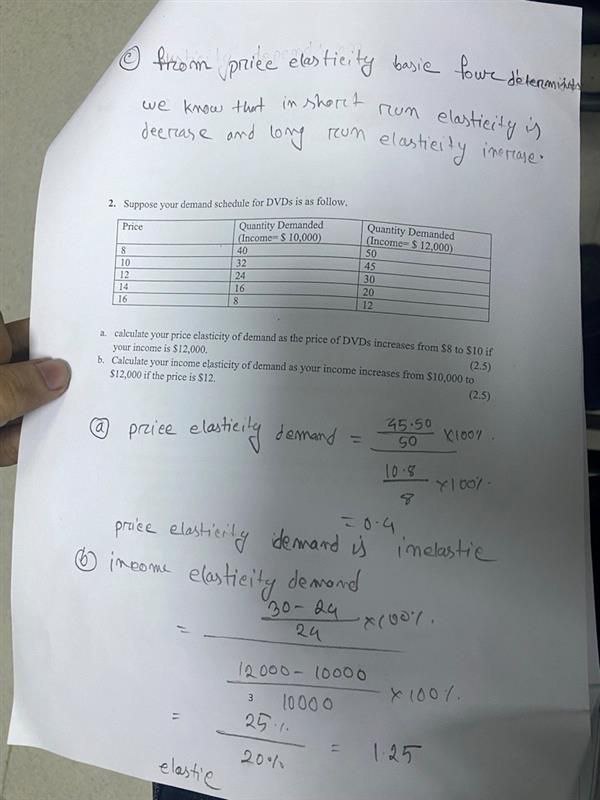 c from price elasticity basic four determinants
we know that in short run elasticity is
decrase and long run elasticity incrase.
2. Suppose your demand schedule for DVDs is as follow.
Price Quantity Demanded (Income= $ 10,000) Quantity Demanded (Income= $ 12,000)
8 40 50
10 32 45
12 24 30
14 16 20
16 8 12
a. calculate your price elasticity of demand as the price of DVDs increases from $8 to $10 if
your income is $12,000. (2.5)
b. Calculate your income elasticity of demand as your income increases from $10,000 to
$12,000 if the price is $12.
(2.5)
a price elasticity demand = 45-50
50 ×100%.
10-8
8 ×100%.
= 0.4
price elasticity demand is inelastic
b income elasticity demand
= 30-24
24 ×100%.
12000 - 10000
10000 ×100%.
3
= 25%
20% = 1.25
elastic